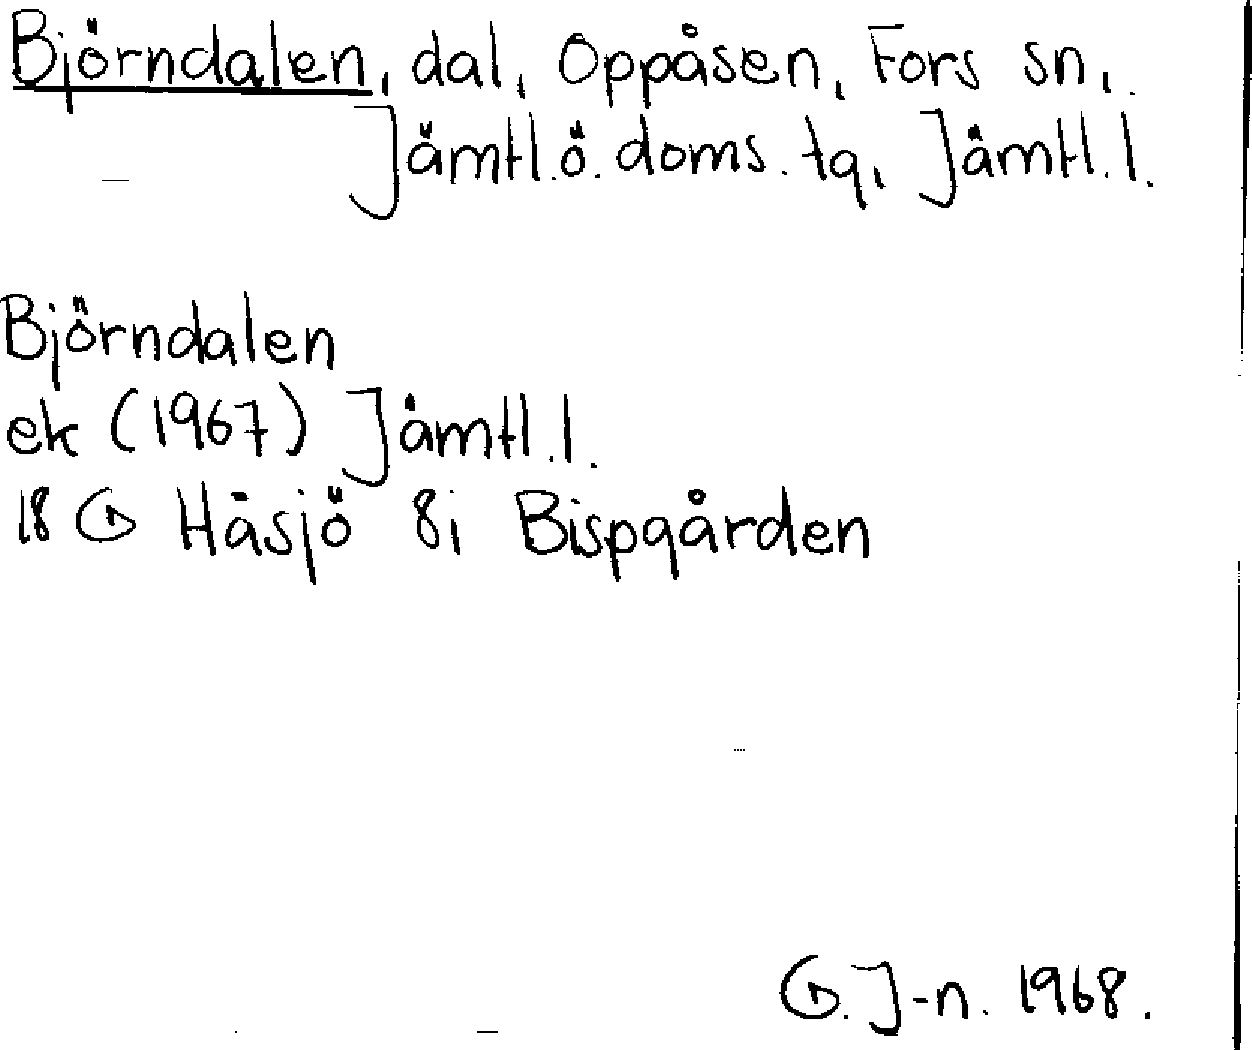 Björndalen, dal, Oppåsen, Fors sn,
Jämtl.ö. doms. tg, Jämtl.l.
Björndalen
ek (1967) Jämtl.l.
18 G Håsjö 8i Bispgården
G. J-n. 1968.